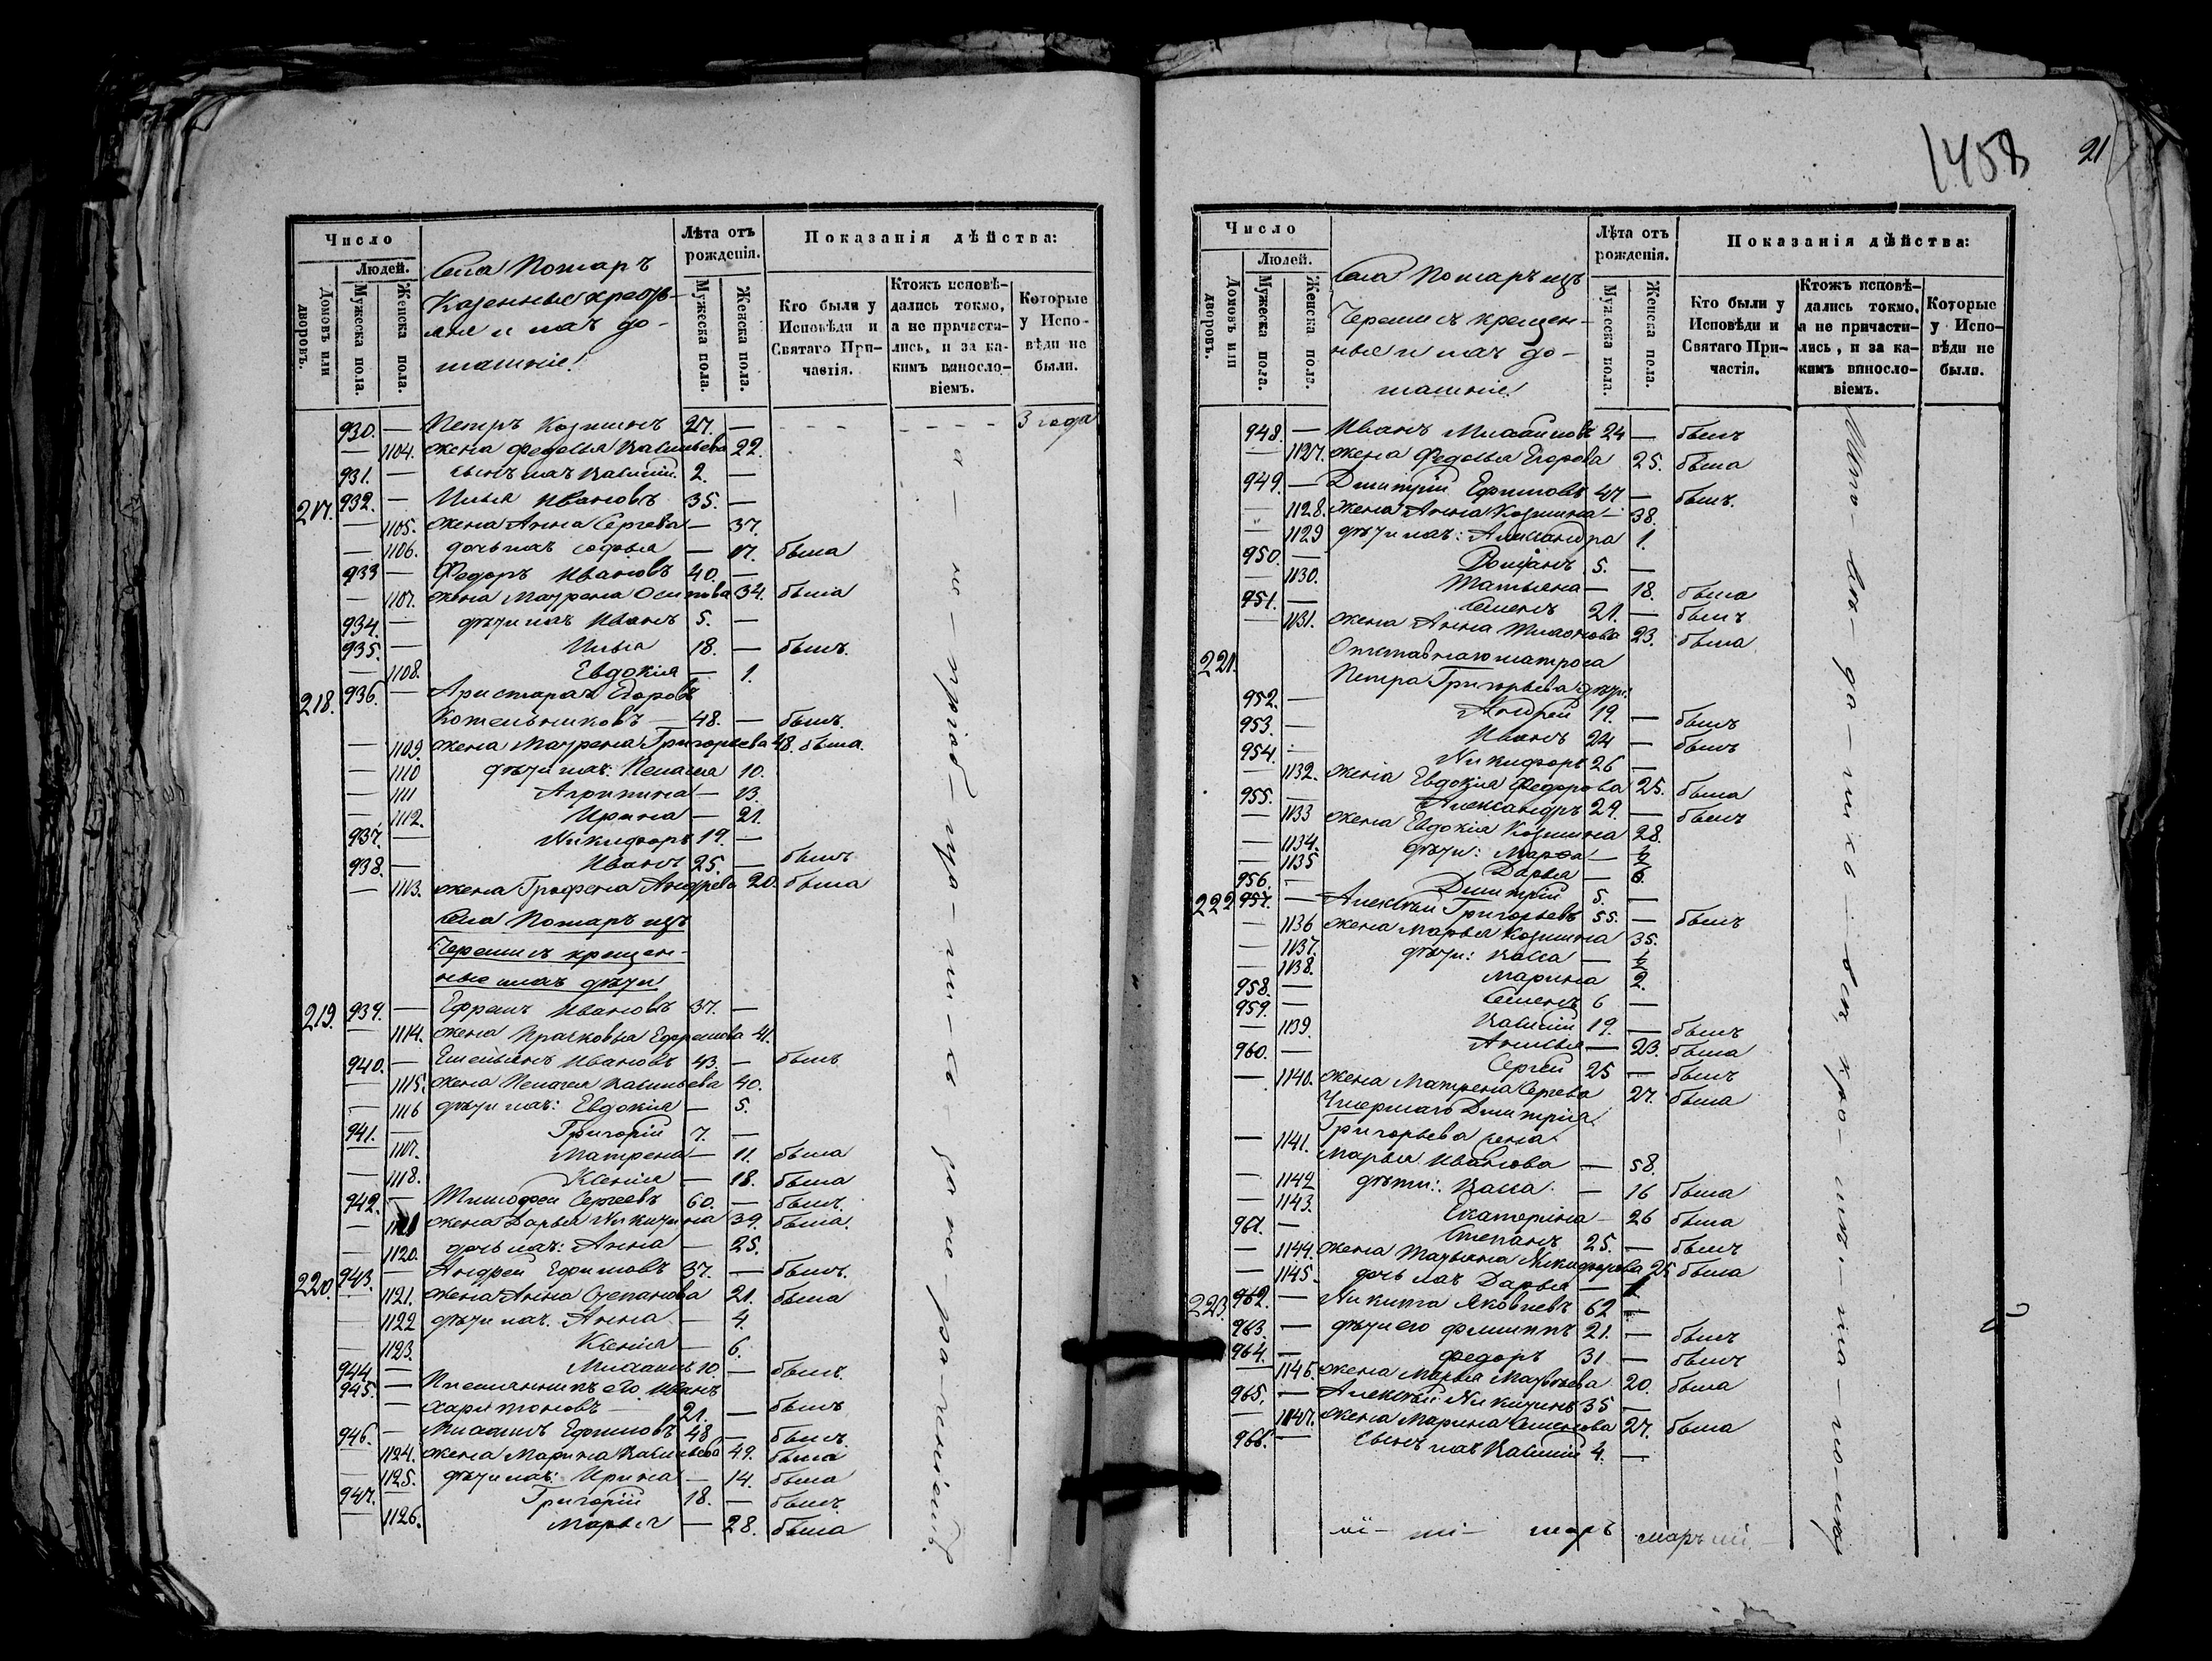 Число
Людей.
Домовъ или дворовъ.
Мужеска пола.
Женска пола.
Села Помаръ
Казенные крестья-
не и ихъ до-
машніе:
Лѣта отъ рожденія.
Мужеска пола.
Женска пола.
Показанія дѣйства:
Кто были у Исповѣди и Святаго При-частія.
Ктожъ исповѣ-дались токмо, а не причасти-лись, и за ка-кимъ виносло-віемъ.
Которые у Испо-вѣди не были.
930. — Петръ Козминъ 27. — 3 года
— 1104. жена Федосья Васильева 22.
931. — сынъ ихъ Василій. 2. —
217. 932. — Илья Ивановъ 35. —
— 1105. жена Анна Сергева — 37.
— 1106. дочь ихъ Софья — 17. была
933 — Федоръ Ивановъ 40. —
— 1107. жена Маѵрена Осипова 34. была
934. — дѣти ихъ Иванъ 5. —
935. — Илья 18. — былъ.
— 1108. Евдокія — 1.
218. 936. — Аристархъ Егоровъ
Котельниковъ — 48. — былъ.
— 1109. жена Маѵрена Григорьева 48. была.
— 1110 дѣти ихъ: Пелагея 10.
— 1111 Агрипина — 13.
— 1112. Ирина — 21.
937. — Никифоръ 19. —
938. — Иванъ 25. — былъ
— 1113. жена Графена Андрева 20. была
Села Помаръ изъ
Черемисъ крещен-
ные и ихъ дѣти
219. 939. — Ефремъ Ивановъ 37. —
— 1114. жена Прасковья Ефремова 41.
940. — Емельянъ Ивановъ 43. — былъ
— 1115. жена Пелагея Васильева 40.
— 1116 дѣти ихъ: Евдокія — 5.
941. — Григорій 7. —
— 1117. Матрена — 11. была
— 1118. Ксенія — 18. была
942. — Тимофей Сергеевъ 60. — былъ.
— жена Дарья Никитина 39. была.
— 1120. дочь ихъ: Анна — 25.
220. 943. — Андрей Ефимовъ 37. — былъ.
— 1121. жена Анна Степанова 21. была
— 1122 дѣти ихъ. Анна — 4.
— 1123. Ксенія — 6.
944. — Михаилъ 10. — былъ.
945. — Племянникъ его Иванъ
— Харитоновъ — 21. — былъ
946. — Михаилъ Ефимовъ 48 — былъ
— 1124. жена Марина Васильева 49. была
— 1125. дѣти ихъ: Ирина — 14. была
947. Григорій 18. — былъ
— 1126. Марья — 28. была
1458
21
Число
Людей.
Домовъ или дворовъ.
Мужеска пола.
Женска пола.
Села Помаръ изъ
Черемисъ крещен-
ные и ихъ до-
машніе:
Лѣта отъ рожденія.
Мужеска пола.
Женска пола.
Показанія дѣйства:
Кто были у Исповѣди и Святаго При-частія.
Ктожъ исповѣ-дались токмо, а не причасти-лись, и за ка-кимъ виносло-віемъ.
Которые у Испо-вѣди не были.
948. — Иванъ Михайловъ 24 — былъ
— 1127. жена Федосья Егорова 25. была
949. — Дмитрій Ефимовъ 47 — былъ.
— 1128. жена Анна Козмина — 38.
— 1129 дѣти ихъ: Александра 1.
950. — Романъ 5. —
— 1130. Татьяна — 18. была
951. — Семенъ 21. — былъ
— 1131. жена Анна 23. была
221. Отставнаго матроса
Петра Григорьева дѣти:
952. — Андрей 19. — былъ
953. — Иванъ 24 — былъ
954. — Никифоръ 26 —
— 1132. жена Евдокія Федорова 25. была
955. — Александръ 29. — былъ
— 1133 жена Евдокія Козмина 28.
— 1134. дѣти: Марѳа — ½
— 1135 Дарья — 6.
956. — Дмитрій 5. —
222 957. — Алексѣй Григорьевъ 55. — былъ
— 1136 жена Марья Козмина 35.
— 1137. дѣти: Васса — ½
— 1138. Марина 2.
958. — Семенъ 6 —
959. — Василій 19. — былъ
— 1139. Анисья — 23. была
960. — Сергей 25 — былъ
— 1140. жена Матрена Сергева 27. была
Умершаго Дмитрія
Григорьева жена
— 1141. Марья Иванова — 58.
— 1142 дѣти: Васса — 16 была
— 1143. Екатерина — 26 была
961. — Степанъ 25. — былъ
— 1144. жена Татьяна Никифорова 25 была
— 1145. дочь ихъ Дарья — 1
223. 962. — Никита Яковлевъ 62 —
963. — дѣти его Филиппъ 21. — былъ
964. — Федоръ 31 — былъ
— 1146. жена Марья Матвѣева 20. была
965. — Алексѣй Никитинъ 35 —
— 1147. жена Марина Семенова 27. была
966. — сынъ ихъ Василій 4. —